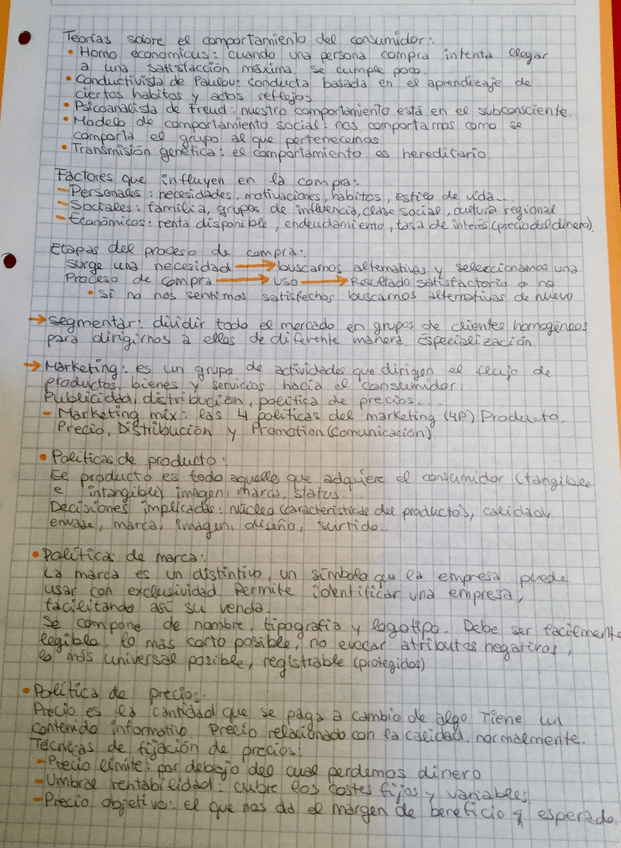 Teorías sobre el comportamiento del consumidor:
• Homo economicus: cuando una persona compra intenta llegar
a una satisfacción máxima. Se cumple poco.
• Conductivista de Paulov: conducta basada en el aprendizaje de
ciertos habitos y actos reflejos
• Psicoanalista de Freud: nuestro comportamiento está en el subconsciente.
• Modelo de comportamiento social: nos comportamos como se
comporta el grupo al que pertenecemos
• Transmisión genética: el comportamiento es hereditario.
Factores que influyen en la compra:
- Personales: necesidades, motivaciones, habitos, estilo de vida...
- Sociales: familia, grupos de influencia, clase social, cultura regional
- Económicos: renta disponible, endeudamiento, tasa de interés (precio del dinero)
Etapas del proceso de compra:
Surge una necesidad → buscamos alternativas y seleccionamos una
Proceso de compra → Uso → Resultado satisfactorio o no
• Si no nos sentimos satisfechos buscamos alternativas de nuevo
→ Segmentar: dividir todo el mercado en grupos de clientes homogéneos
para dirigirnos a ellos de diferente manera. Especialización.
→ Marketing: es un grupo de actividades que dirigen el flujo de
productos, bienes y servicios hacia el consumidor.
Publicidad, distribución, política de precios...
- Marketing mix: las 4 políticas del marketing (4P) Producto,
Precio, Distribución y Promotion (Comunicación)
• Políticas de producto:
El producto es todo aquello que adquiere el consumidor (tangible
e intangible) imagen, marca, status.
Decisiones implicadas: núcleo (características del producto), calidad,
envase, marca, imagen, diseño, surtido...
• Política de marca:
La marca es un distintivo, un símbolo que la empresa puede
usar con exclusividad. Permite identificar una empresa,
facilitando así su venta.
Se compone de nombre, tipografía y logotipo. Debe ser facilmente
legible, lo más corto posible, no evocar atributos negativos,
lo más universal posible, registrable (protegidos)
• Política de precios:
Precio es la cantidad que se paga a cambio de algo. Tiene un
contenido informativo. Precio relacionado con la calidad, normalmente.
Técnicas de fijación de precios:
- Precio límite: por debajo del cual perdemos dinero
- Umbral rentabilidad: cubre los costes fijos y variables
- Precio objetivo: el que nos da el margen de beneficio q esperado